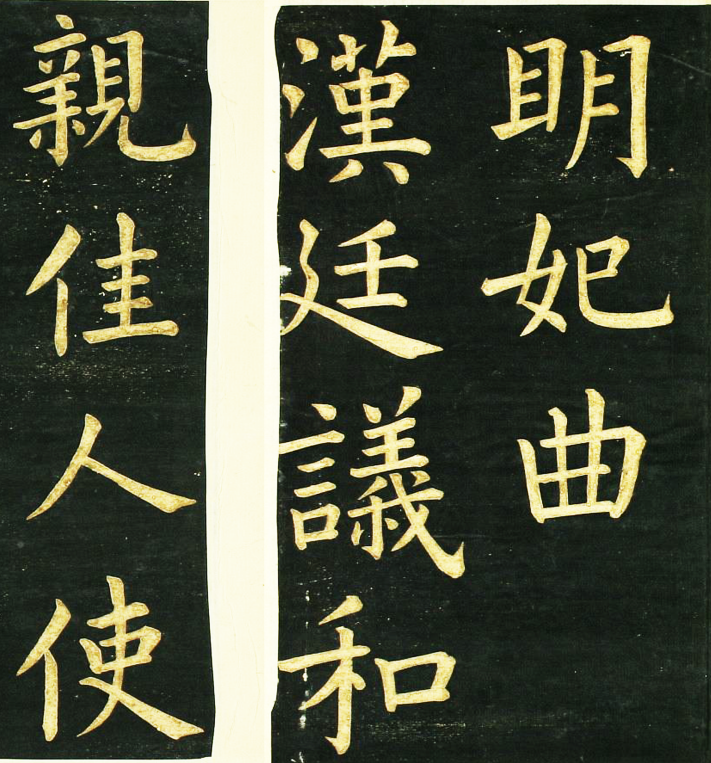 明妃曲
漢廷議和
親佳人使